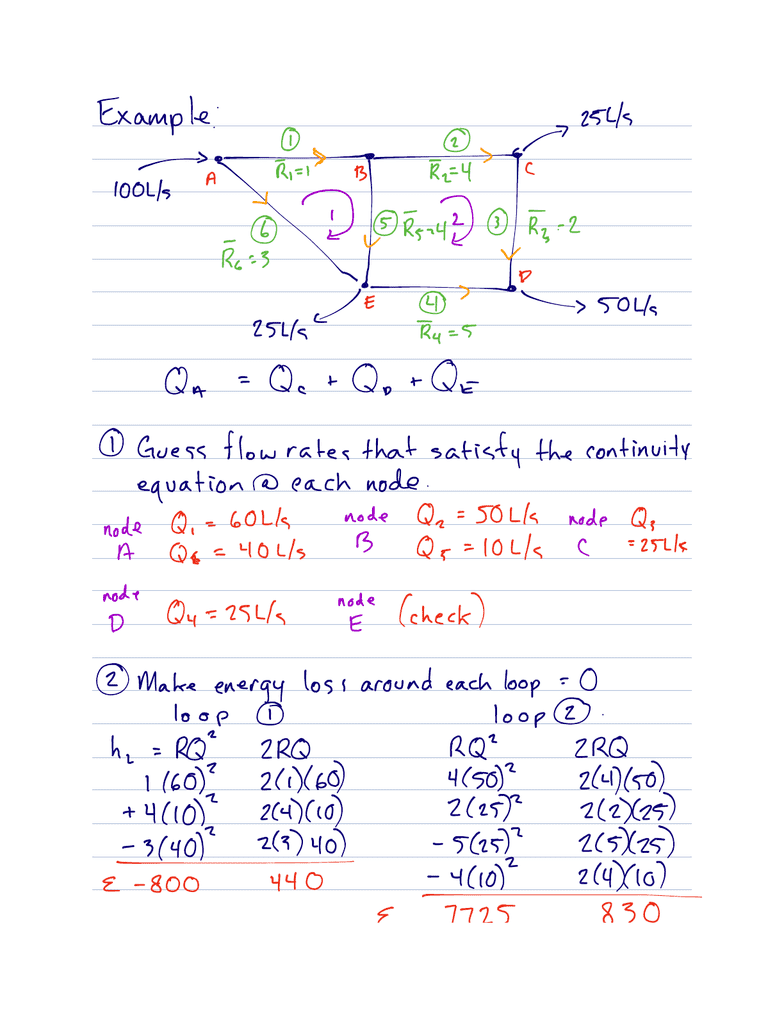 Example:
25L/s
① ②
A R̄₁=1 B R̄₂=4 C
100L/s
1 ⑤ R̄₅=4 2 ③ R̄₃=2
⑥
R̄₆=3
D
E ④ 50L/s
25L/s R̄₄=5
Q_A = Q_C + Q_D + Q_E
① Guess flow rates that satisfy the continuity
equation @ each node.
node A Q₁ = 60L/s node B Q₂ = 50L/s node C Q₃
Q₆ = 40L/s Q₅ = 10L/s = 25L/s
node D Q₄ = 25L/s node E (check)
② Make energy loss around each loop = 0
loop ① loop ②.
h_L = RQ² 2RQ RQ² 2RQ
1(60)² 2(1)(60) 4(50)² 2(4)(50)
+4(10)² 2(4)(10) 2(25)² 2(2)(25)
-3(40)² 2(3)40) -5(25)² 2(5)(25)
Σ -800 440 -4(10)² 2(4)(10)
Σ 7725 830